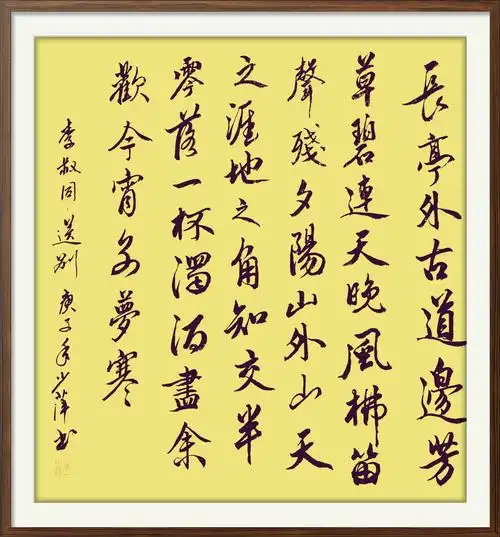 長亭外古道邊芳
草碧連天晚風拂笛
聲殘夕陽山外山天
之涯地之角知交半
零落一杯濁酒盡余
歡今宵别夢寒
李叔同·送别 庚子年少萍书